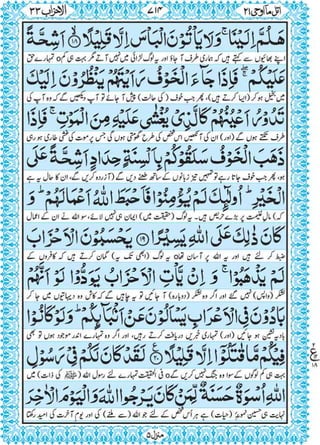 اتل مآ اوحی ۲۱ ۷۱۴ الاحزاب ۳۳
هَلُمَّ اِلَیْنَا ۚ وَ لَا یَاْتُوْنَ الْبَاْسَ اِلَّا قَلِیْلًا ۙ﴿۱۸﴾ اَشِحَّةً
اپنے بھائیوں سے کہتے ہیں کہ ہماری طرف آ جاؤ اور یہ لوگ لڑائی میں نہیں آتے مگر بہت ہی کم۝ تمہارے حق
عَلَیْكُمْ ۚۖ فَاِذَا جَآءَ الْخَوْفُ رَاَیْتَهُمْ یَنْظُرُوْنَ اِلَیْكَ
میں بخیل ہو کر (ایسا کرتے) ہیں، پھر جب خوف (کی حالت) پیش آ جائے تو آپ دیکھیں گے کہ وہ آپ کی
تَدُوْرُ اَعْیُنُهُمْ كَالَّذِیْ یُغْشٰی عَلَیْهِ مِنَ الْمَوْتِ ۚ فَاِذَا
طرف تکتے ہوں گے (اور) ان کی آنکھیں اس شخص کی طرح گھومتی ہوں گی جس پر موت کی غشی طاری ہو رہی ہو،
ذَهَبَ الْخَوْفُ سَلَقُوْكُمْ بِاَلْسِنَةٍ حِدَادٍ اَشِحَّةً عَلَی
پھر جب خوف جاتا رہے تو تمہیں تیز زبانوں کے ساتھ طعنے دیں گے (آزردہ کریں گے، ان کا حال یہ ہے
الْخَیْرِ ؕ اُولٰٓىِٕكَ لَمْ یُؤْمِنُوْا فَاَحْبَطَ اللّٰهُ اَعْمَالَهُمْ ؕ وَ
کہ) مال غنیمت پر بڑے حریص ہیں۔ یہ لوگ (حقیقت میں) ایمان ہی نہیں لائے، سو اللہ نے ان کے اعمال
كَانَ ذٰلِكَ عَلَی اللّٰهِ یَسِیْرًا ﴿۱۹﴾ یَحْسَبُوْنَ الْاَحْزَابَ
ضبط کر لئے ہیں اور یہ اللہ پر آسان تھا۝ یہ لوگ (ابھی تک یہ) گمان کرتے ہیں کہ کافروں کے
لَمْ یَذْهَبُوْا ۚ وَ اِنْ یَّاْتِ الْاَحْزَابُ یَوَدُّوْا لَوْ اَنَّهُمْ
لشکر (واپس) نہیں گئے اور اگر وہ لشکر (دوبارہ) آ جائیں تو یہ چاہیں گے کہ کاش وہ دیہاتیوں میں جا کر
بَادُوْنَ فِی الْاَعْرَابِ یَسْاَلُوْنَ عَنْ اَنْۢبَآىِٕكُمْ ؕ وَ لَوْ كَانُوْا
بادیہ نشین ہو جائیں (اور) تمہاری خبریں دریافت کرتے رہیں، اور اگر وہ تمہارے اندر موجود ہوں تو بھی
فِیْكُمْ مَّا قٰتَلُوْۤا اِلَّا قَلِیْلًا ﴿۲۰﴾ لَقَدْ كَانَ لَكُمْ فِیْ رَسُوْلِ
بہت ہی کم لوگوں کے سوا وہ جنگ نہیں کریں گے۝ فی الحقیقت تمہارے لئے رسول اللہ (ﷺ کی ذات) میں
اللّٰهِ اُسْوَةٌ حَسَنَةٌ لِّمَنْ كَانَ یَرْجُوا اللّٰهَ وَ الْیَوْمَ الْاٰخِرَ
نہایت ہی حسین نمونۂ (حیات) ہے ہر اُس شخص کے لئے جو اللہ (سے ملنے) کی اور یوم آخرت کی امید رکھتا
منزل ۵